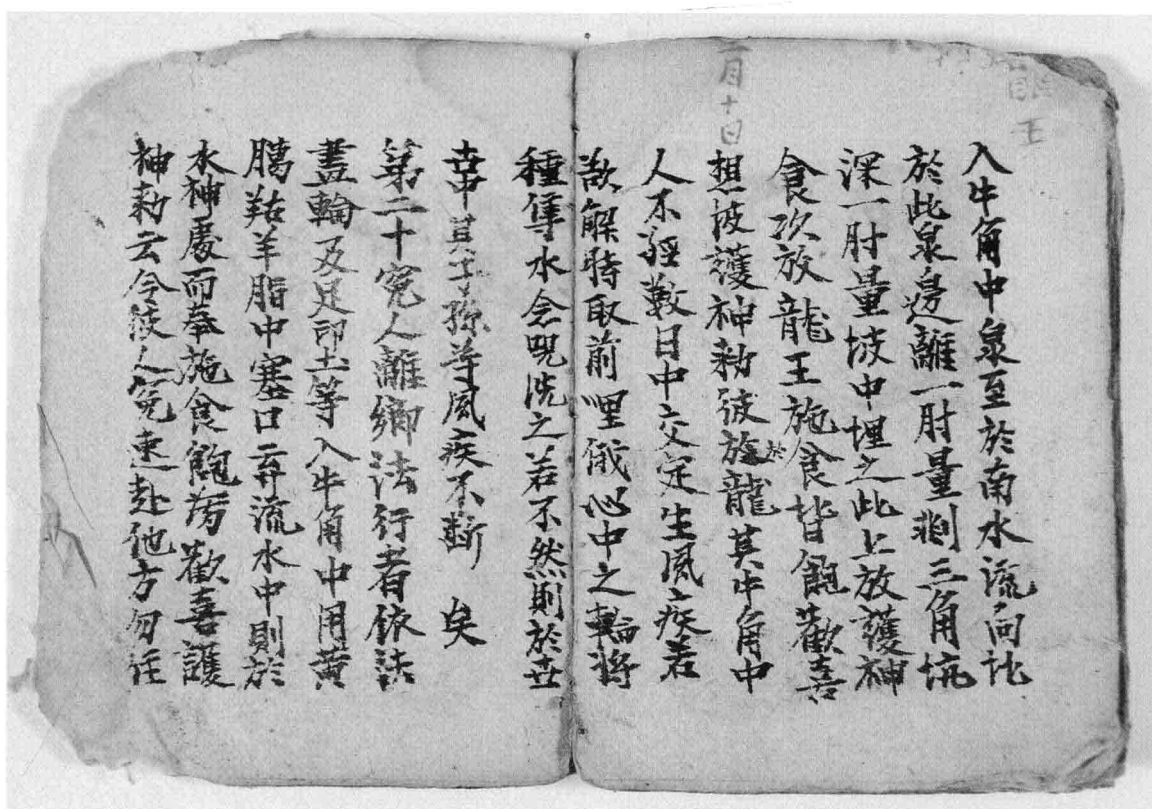 入牛角中泉至於南水流向北
於此泉邊離一肘量剜三角坑
深一肘量坡中埋之此上放護神
食次放龍王施食皆飽歡喜
想彼護神勅彼於龍其牛角中
人不經數日中交定生風疾若
欲解時取前哩俄心中之輪將
種集水念呪洗之若不然則於世
世中其子孫等風疾不斷 矣
第二十冤人離鄉法行者依法
畫輪及足印土等入牛角中用黃
臈羖羊脂中塞口弃流水中則於
水神處而奉施食飽滿歡喜護
神勅云今彼人冤速赴他方勿任
二月十日
王